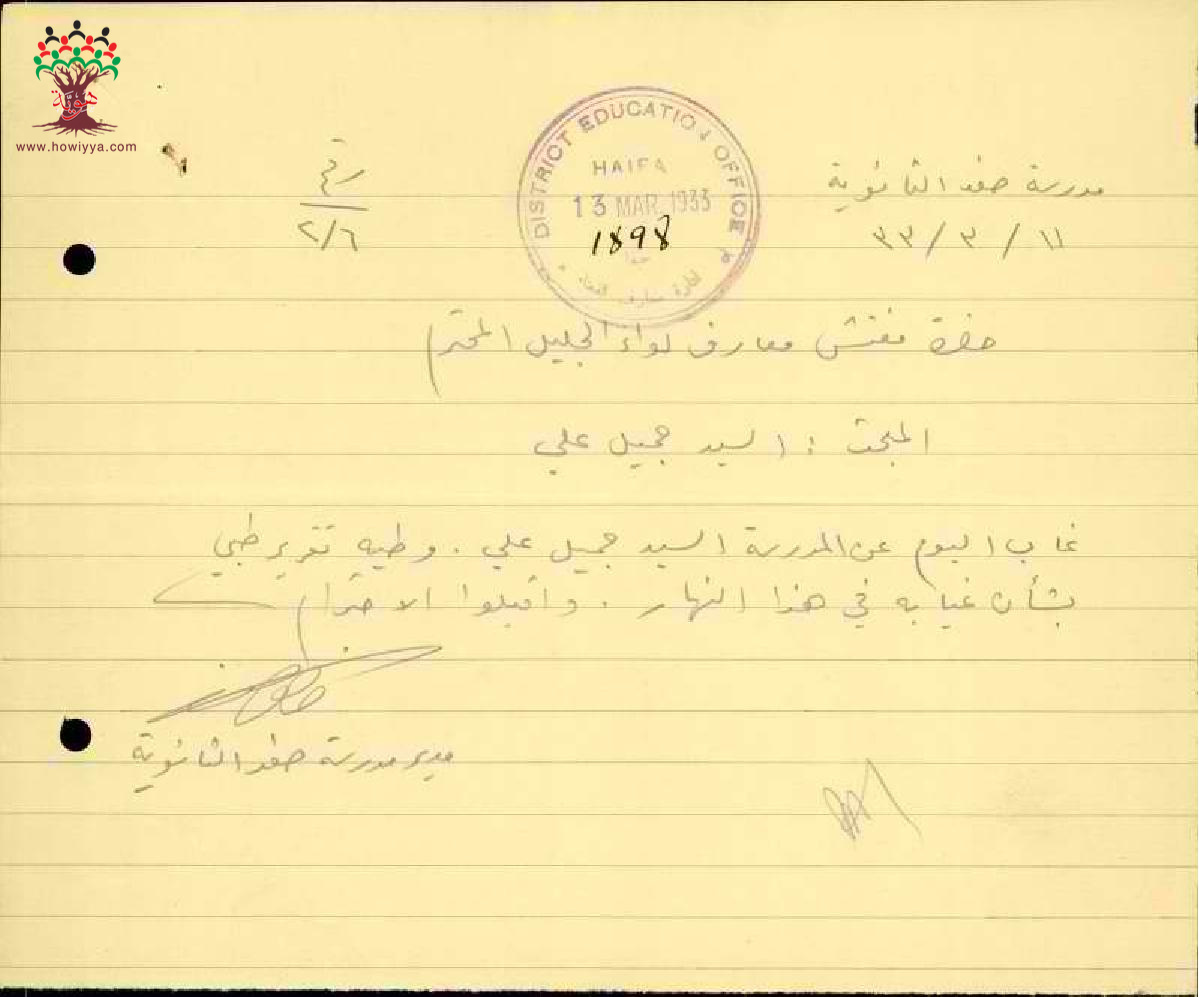 هوية
www.howiyya.com
مدرسة صفد الثانوية
١١ / ٣ / ٣٣
رقم
٢/٦
DISTRICT EDUCATION OFFICE
HAIFA
13 MAR 1933
1898
حيفا
ادارة معارف القضاء
حضرة مفتش معارف لواء الجليل المحترم
المبحث : السيد جميل علي
غاب اليوم عن المدرسة السيد جميل علي . وطيه تقرير طبي
بشأن غيابه في هذا النهار . واقبلوا الاحترام
مدير مدرسة صفد الثانوية